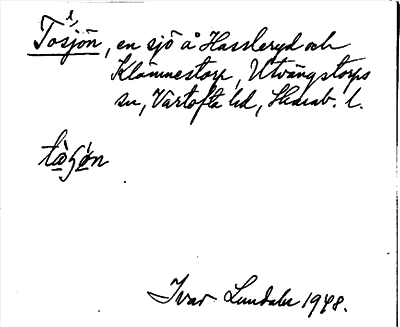 Tosjön, en sjö å Hassleryd och
Klämmestorp, Utvängstorps
sn, Vartofta hd, Skarab. l.
tàʂø̀n
Ivar Lundahl 1948.